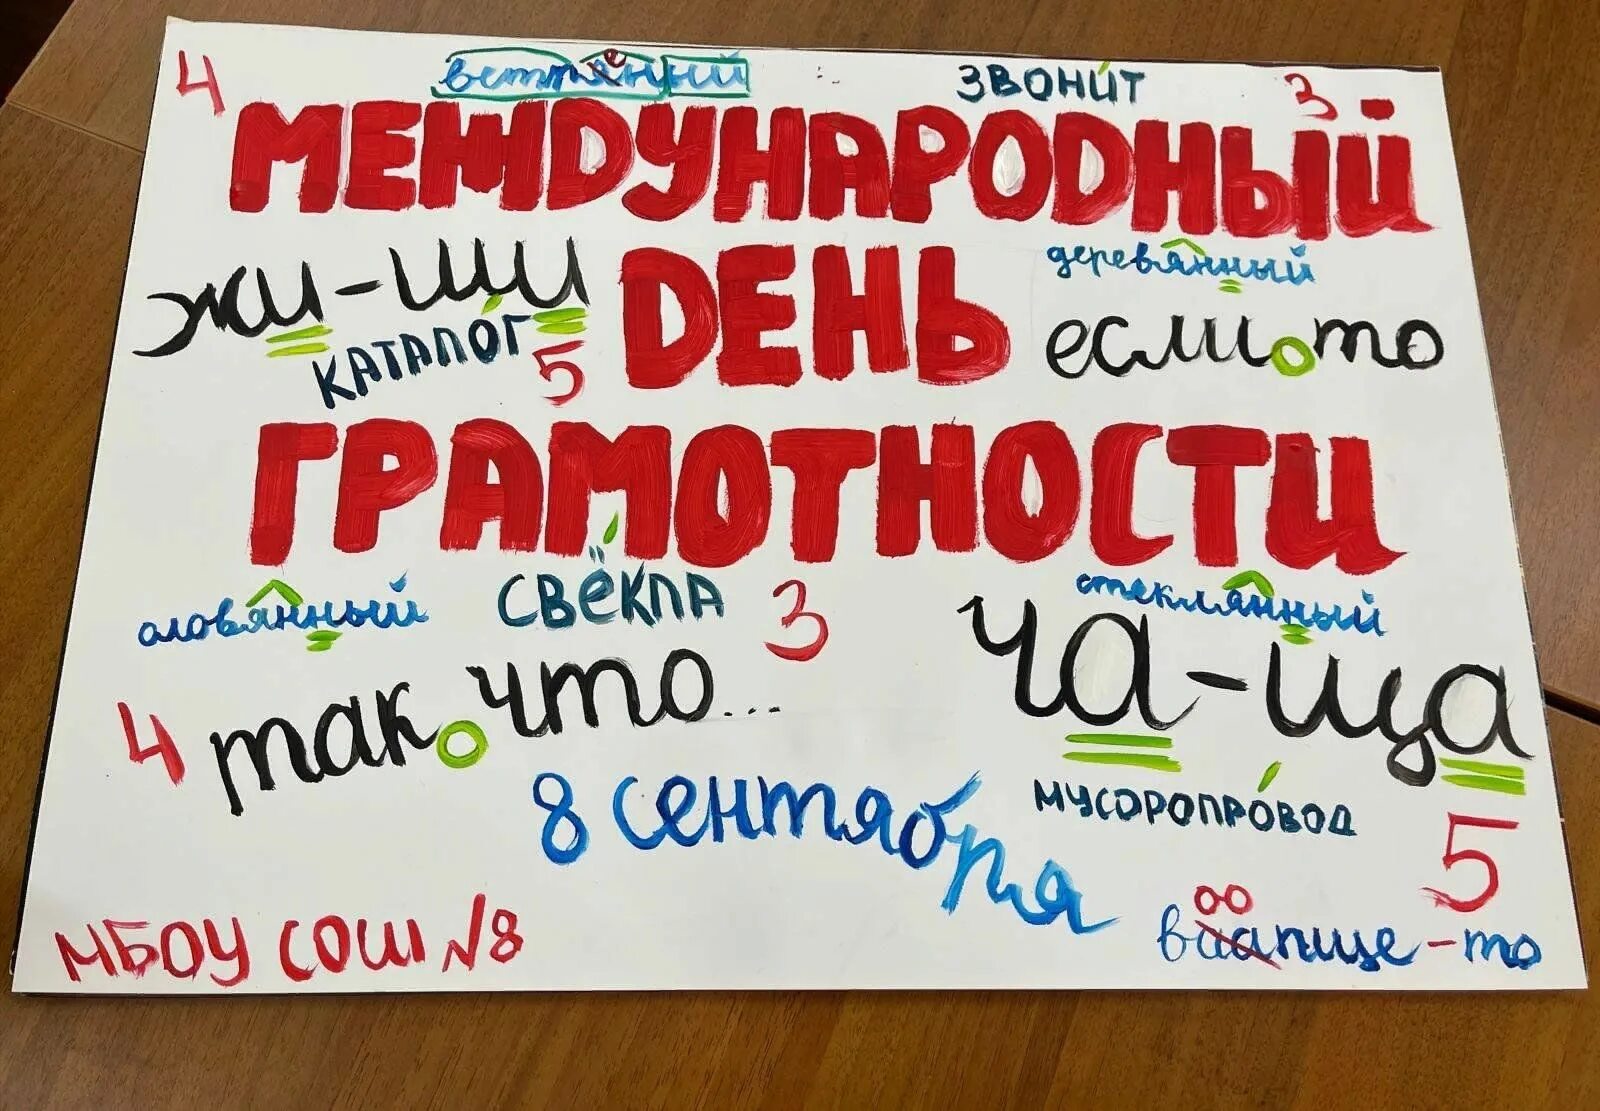 4 звонит 3
МЕЖДУНАРОДНЫЙ
жи-ши ДЕНЬ деревянный
каталог 5 если то
ГРАМОТНОСТИ
оловянный свёкла 3 стеклянный
4 так что... ча-ща
8 сентября мусоропровод
5
МБОУ СОШ №8 ваапще-то
оо